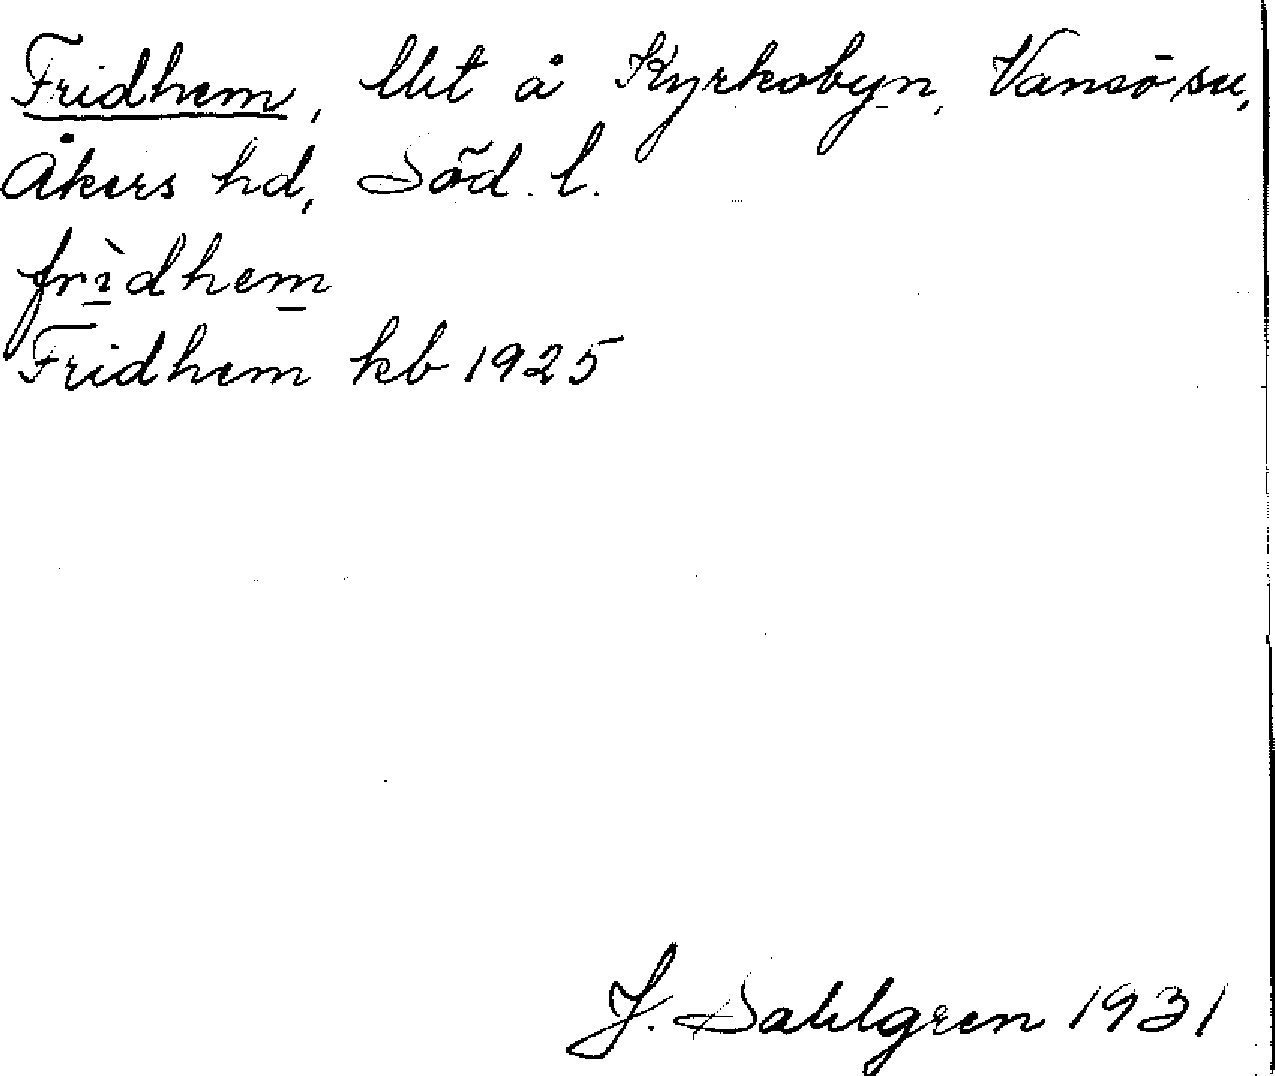 Fridhem, lht å Kyrkobyn, Vansö sn,
Åkers hd, Söd. l.
frìdhem
Fridhem kb 1925
J. Dahlgren 1931